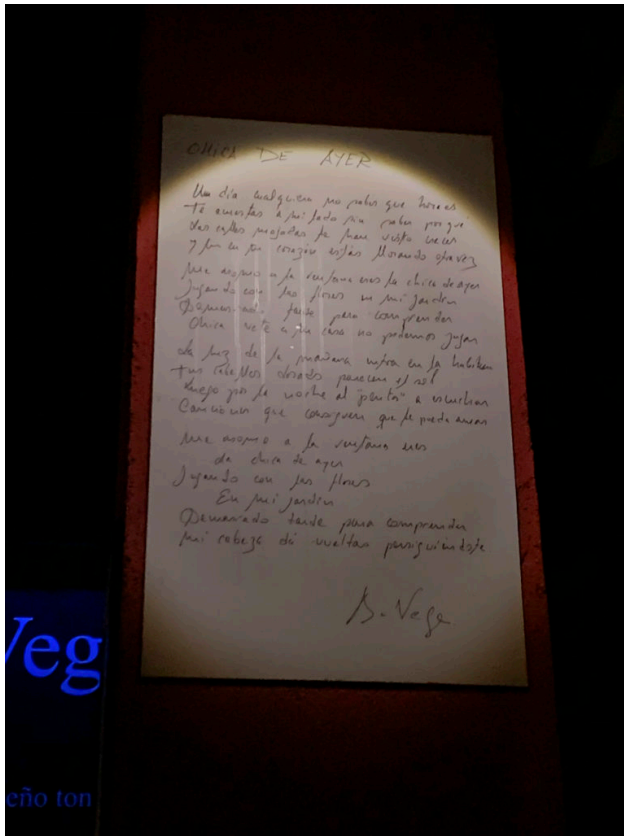 CHICA DE AYER
Un día cualquiera no sabes que hora es
Te acuestas a mi lado sin saber por qué
Las calles mojadas te han visto crecer
Y tu en tu corazón estás llorando otra vez
Me asomo a la ventana eres la chica de ayer
Jugando con las flores en mi jardín
Demasiado tarde para comprender
Chica vete a tu casa no podemos jugar
La luz de la mañana entra en la habitación
Tus cabellos dorados parecen el sol
Luego por la noche al "penta" a escuchar
Canciones que consiguen que te pueda amar
Me asomo a la ventana eres
La chica de ayer
Jugando con las flores
En mi jardín
Demasiado tarde para comprender
Mi cabeza dá vueltas persiguiéndote
A. Vega
Veg
eño ton